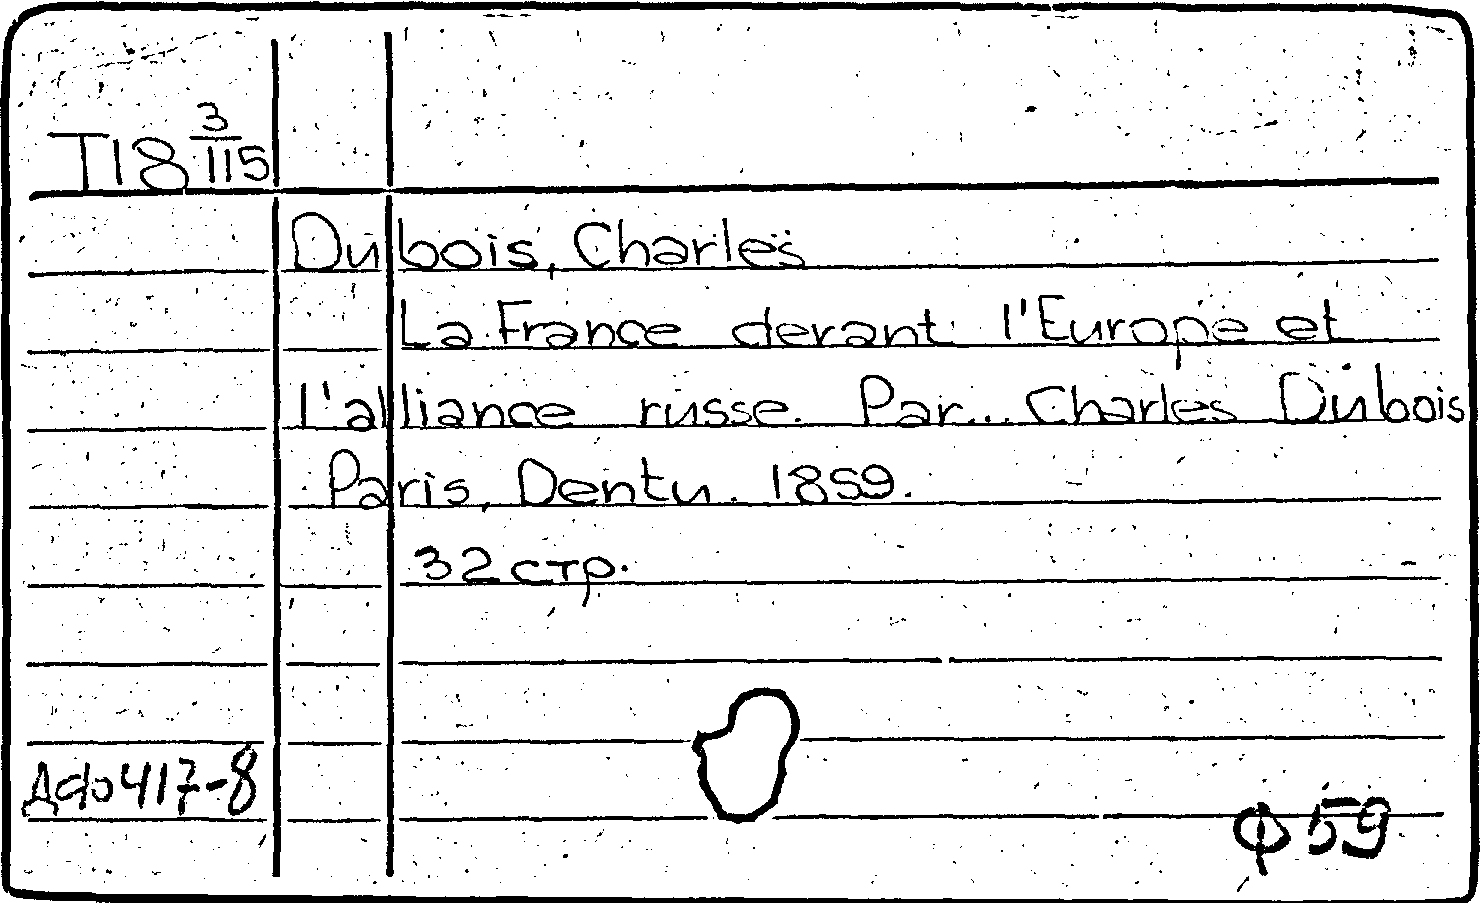 T18 3/115
Dubois, Charles
La France derant l'Europe et
L'alliance russe. Par... Charles Dubois
Paris, Dentu. 1859.
32 стр.
Дф417-8
Ф 59